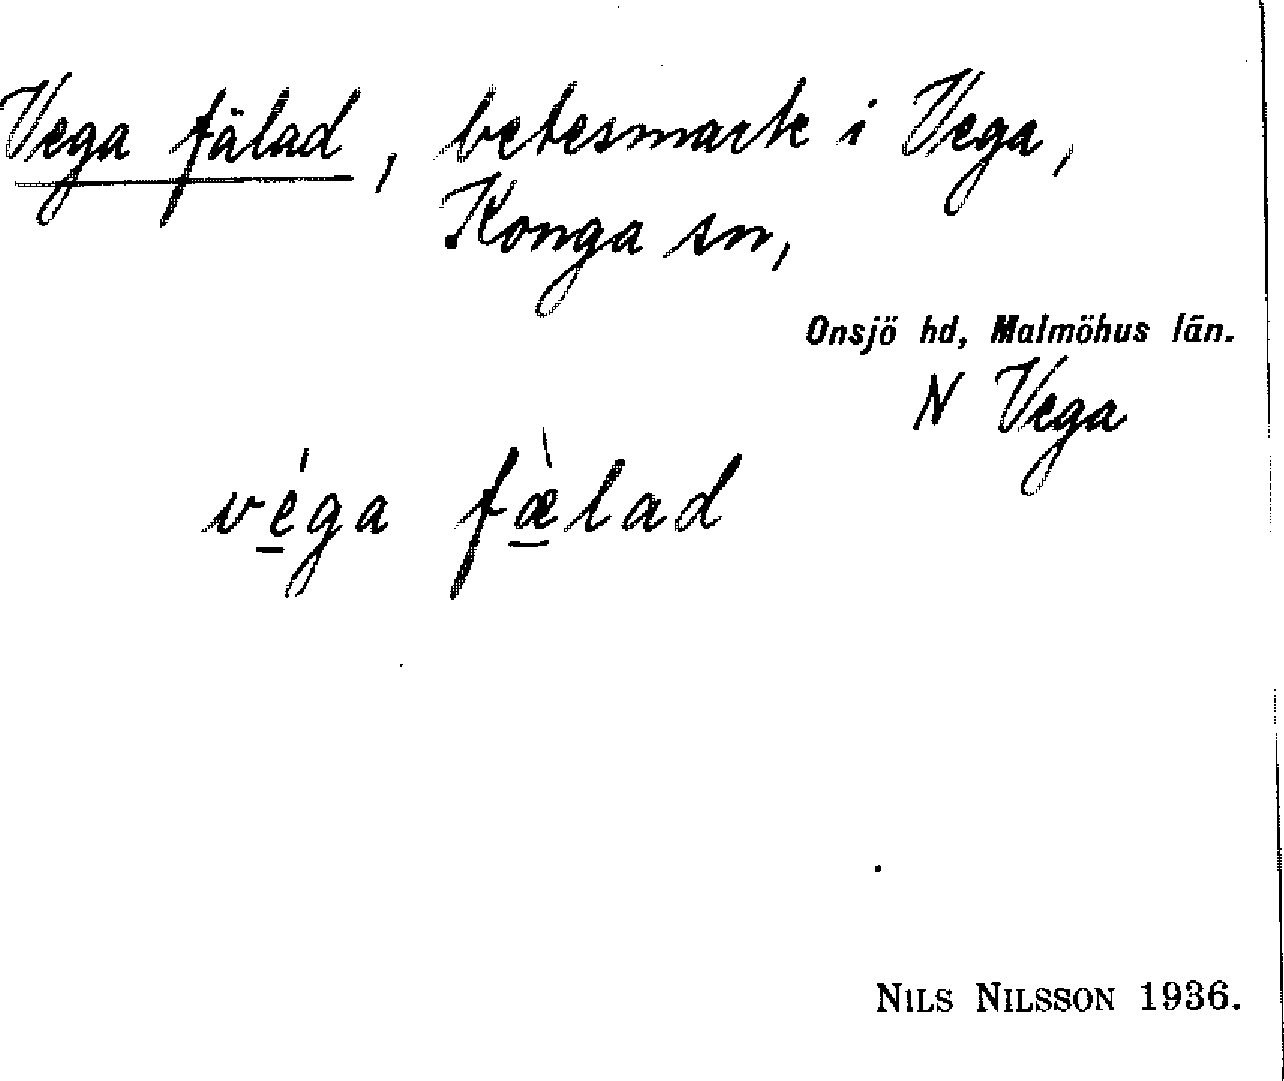 Vega fälad, betesmark i Vega,
Konga sn,
Onsjö hd, Malmöhus län.
N Vega
véga fæ̀lad
NILS NILSSON 1936.